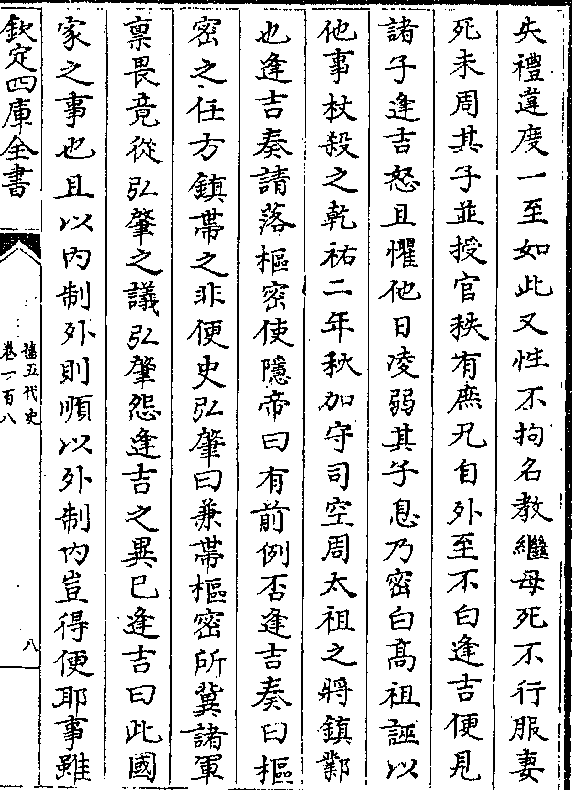 失禮違度一至如此又性不拘名教繼母死不行服妻
死未周其子並授官秩有庶兄自外至不白逢吉便見
諸子逢吉怒且懼他日凌弱其子息乃密白髙祖誣以
他事杖殺之乾祐二年秋加守司空周太祖之將鎮鄴
也逢吉奏請落樞密使隱帝曰有前例否逢吉奏曰樞
密之任方鎮帶之非便史弘肇曰兼帶樞密所冀諸軍
禀畏竟從弘肇之議弘肇怨逢吉之異已逢吉曰此國
家之事也且以内制外則順以外制内豈得便耶事雖
欽定四庫全書
舊五代史
卷一百八
八